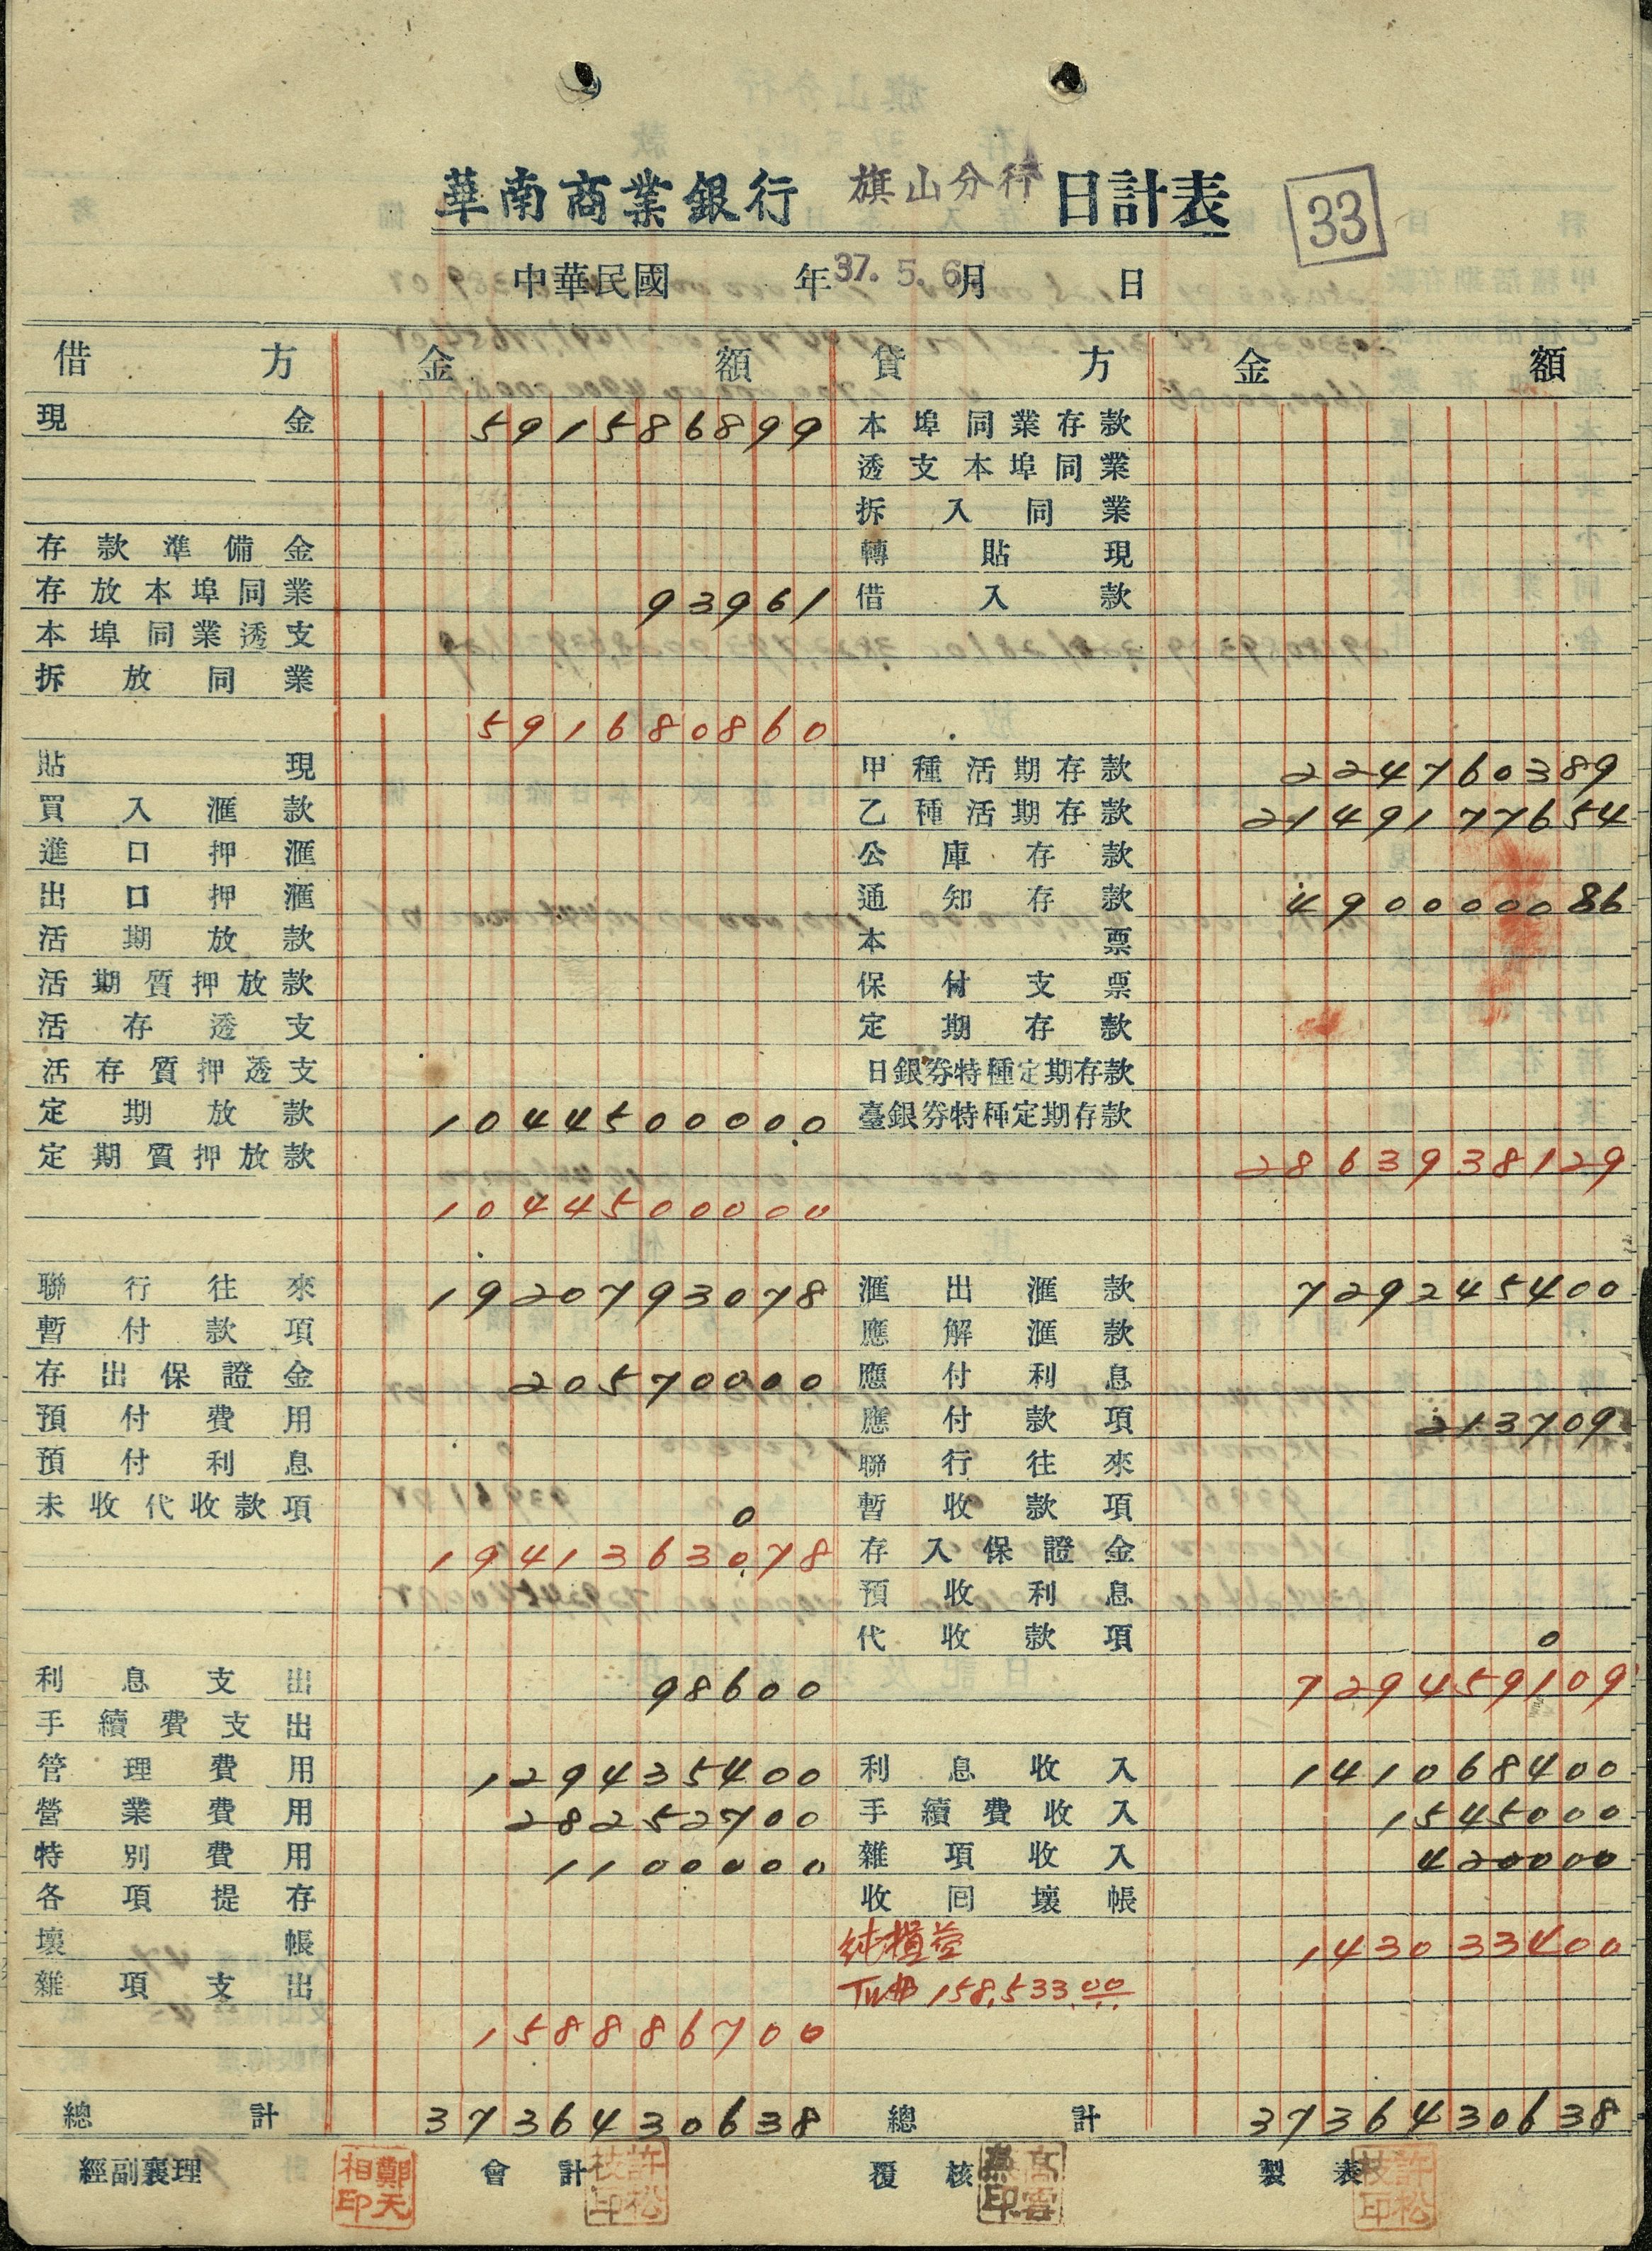 華南商業銀行 旗山分行 日計表 33
中華民國 年 37. 5. 6. 月 日
借方 金額 貸方 金額
現金 591586899 本埠同業存款
透支本埠同業
拆入同業
存款準備金 轉貼現
存放本埠同業 93961 借入款
本埠同業透支
拆放同業
591680860
貼現 甲種活期存款 224760389
買入滙款 乙種活期存款 2149177654
進口押滙 公庫存款
出口押滙 通知存款 490000086
活期放款 本票
活期質押放款 保付支票
活存透支 定期存款
活存質押透支 日銀券特種定期存款
定期放款 1044500000 臺銀券特種定期存款
定期質押放款 2863938129
1044500000
聯行往來 1920793078 滙出滙款 729245400
暫付款項 應解滙款
存出保證金 20570000 應付利息
預付費用 應付款項 213709
預付利息 聯行往來
未收代收款項 0 暫收款項
1941363078 存入保證金
預收利息
代收款項 0
利息支出 98600 729459109
手續費支出
管理費用 129435400 利息收入 141068400
營業費用 28252700 手續費收入 1545000
特別費用 1100000 雜項收入 420000
各項提存 收回壞帳
壞帳 純損益 143033400
雜項支出 158,533.00
158886700
總計 3736430638 總計 3736430638
經副襄理 鄭天相印 會計 許松枝印 覆核 製表 許松枝印